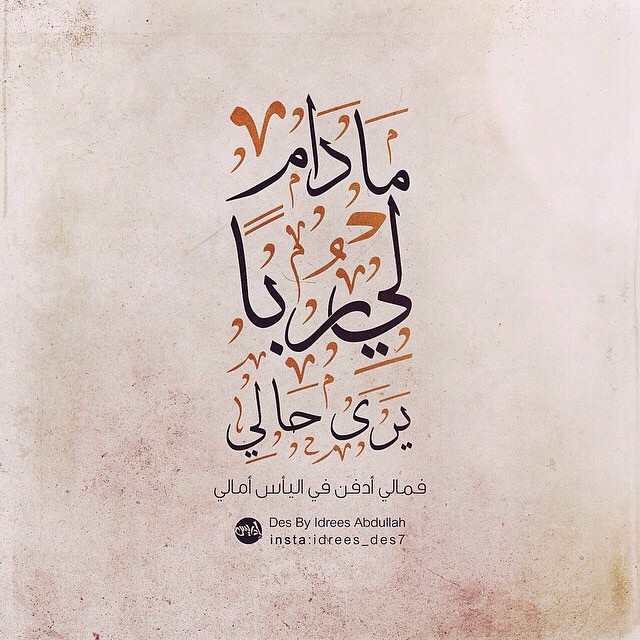 مَا دَام
لِي رُبًا
يَرَى حَالِي
فمالي أدفن في اليأس أمالي
Des By Idrees Abdullah
insta:idrees_des7
إدريس